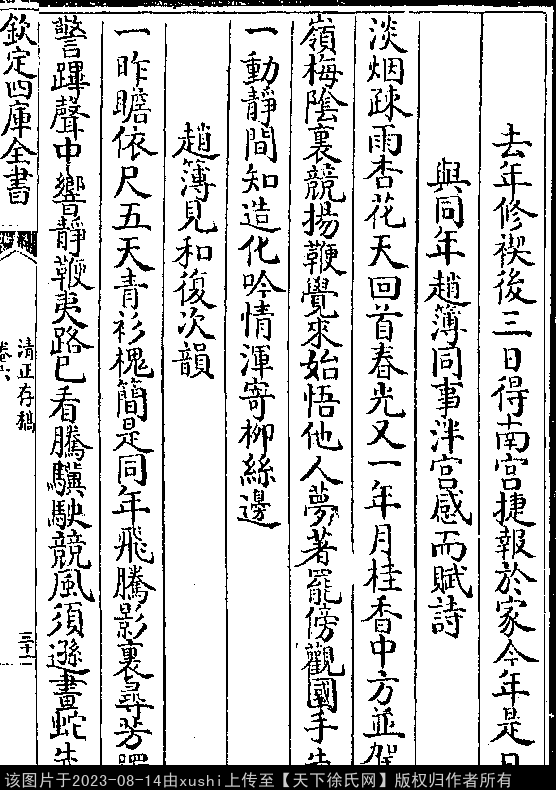 去年修禊後三日得南宮捷報於家今年是日
與同年趙簿同事泮宮感而賦詩
淡烟疎雨杏花天回首春光又一年月桂香中方並
嶺梅陰裏競揚鞭覺來始悟他人夢著罷傍觀國手
一動靜間知造化吟情渾寄柳絲邊
趙簿見和復次韻
一昨瞻依尺五天青衫槐簡是同年飛騰影裏尋芳
警蹕聲中響靜鞭夷路已看騰驥駛競風須遜畫蛇
欽定四庫全書
清正存稿
卷六
三十二
该图片于2023-08-14由xushi上传至【天下徐氏网】版权归作者所有